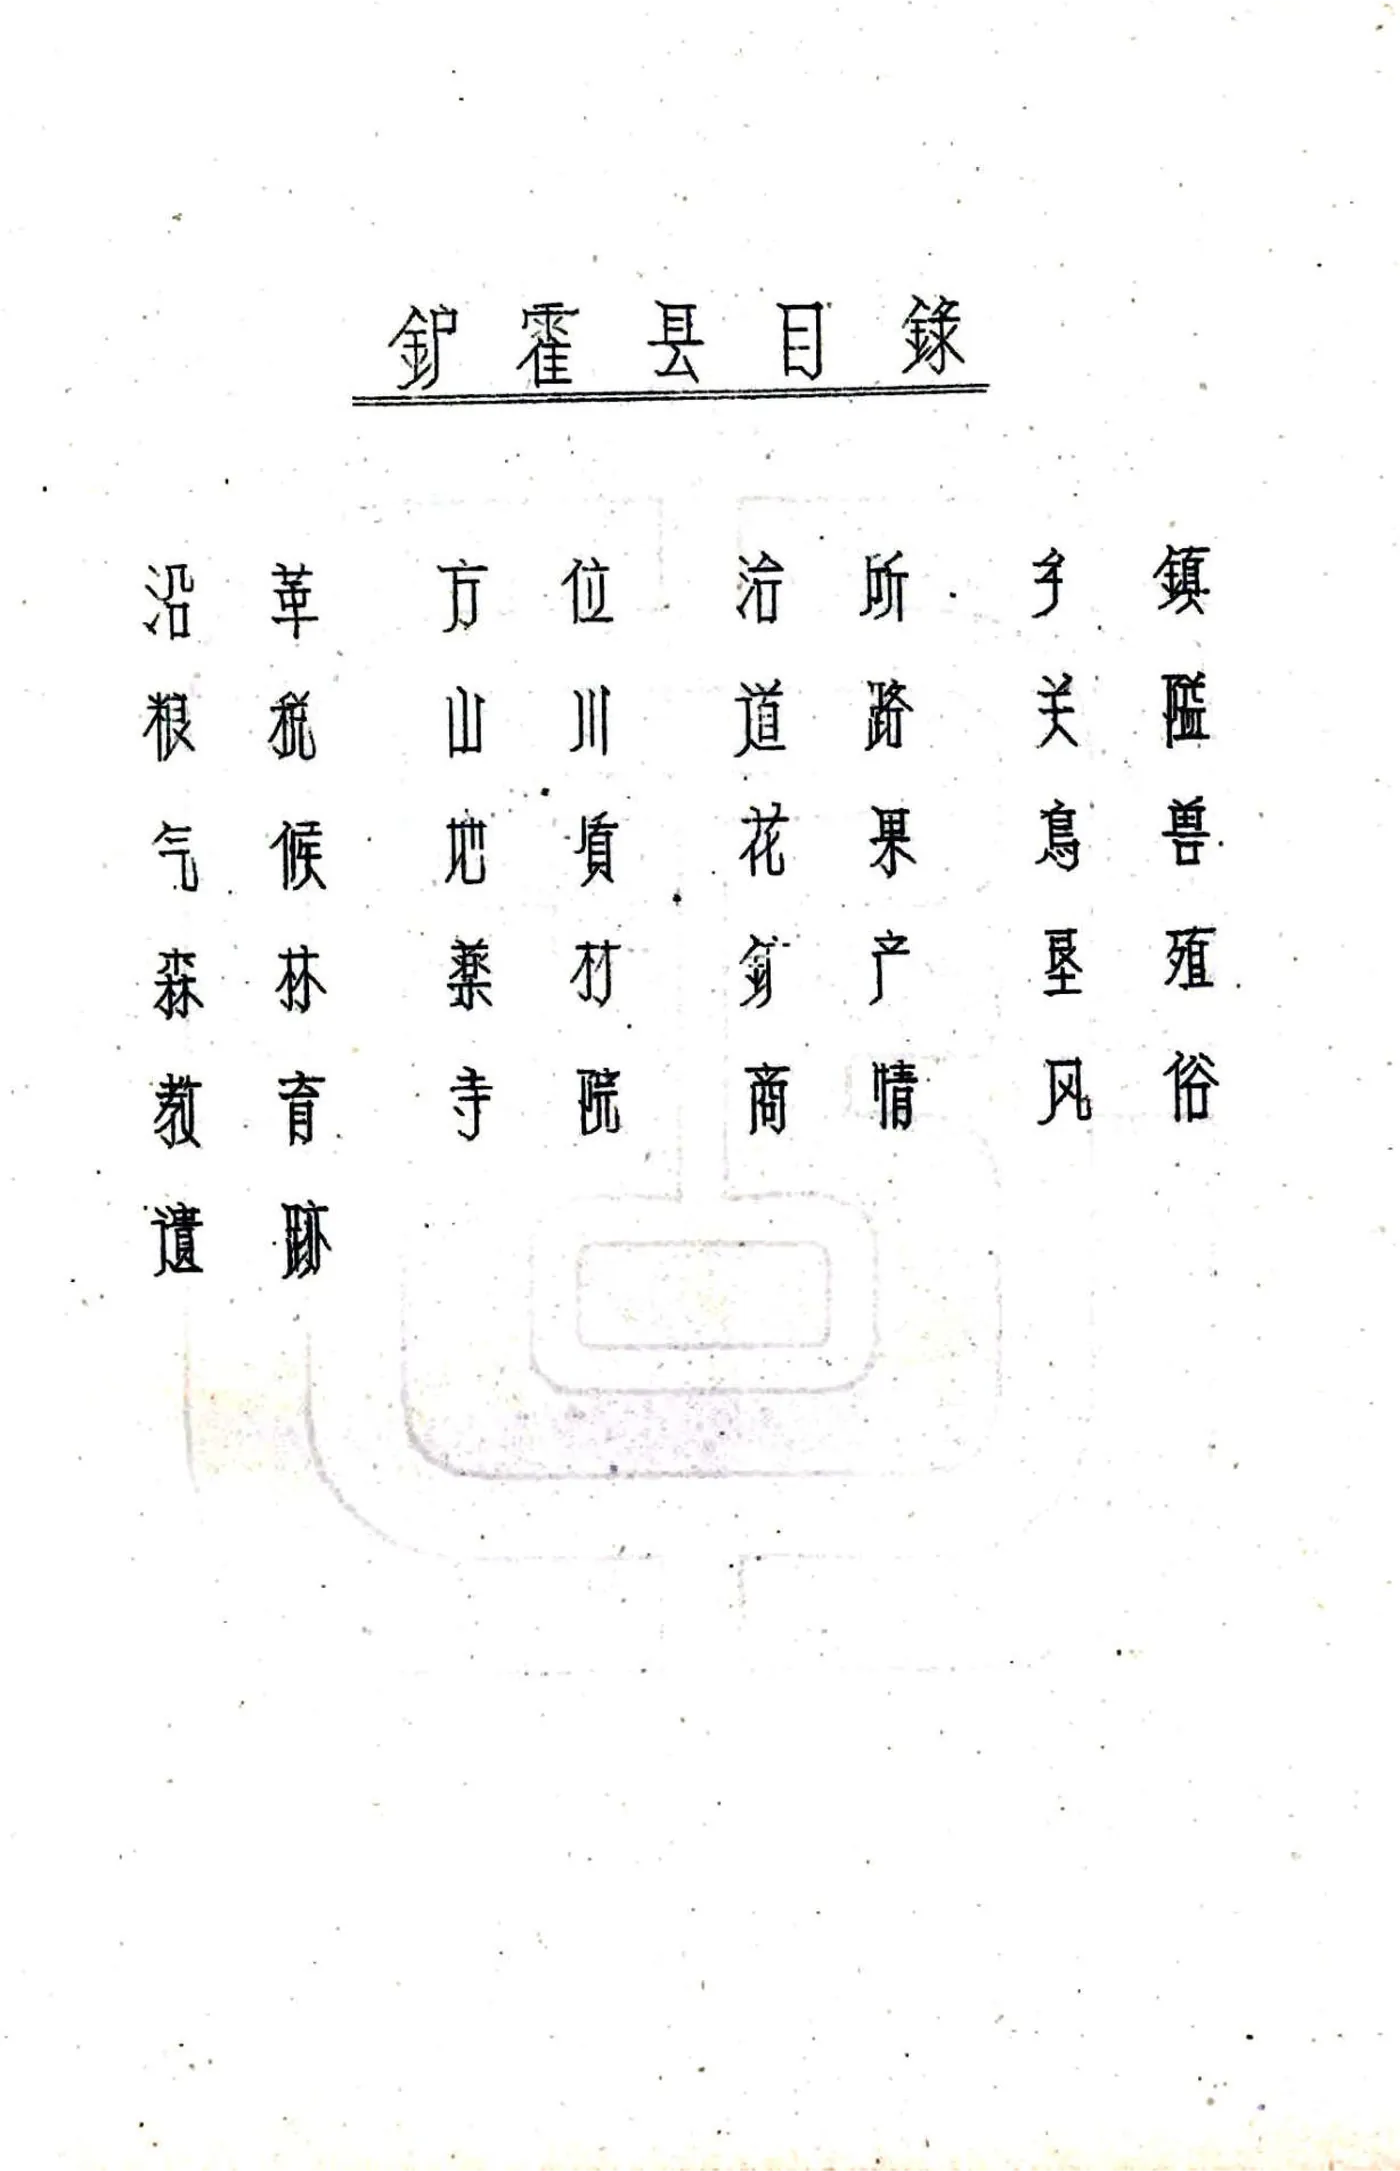 鈩霍县目錄
沿革 方位 治所 乡鎮
粮税 山川 道路 关隘
气候 地質 花果 鳥兽
森林 藥材 鈩产 垦殖
教育 寺院 商情 风俗
遺跡